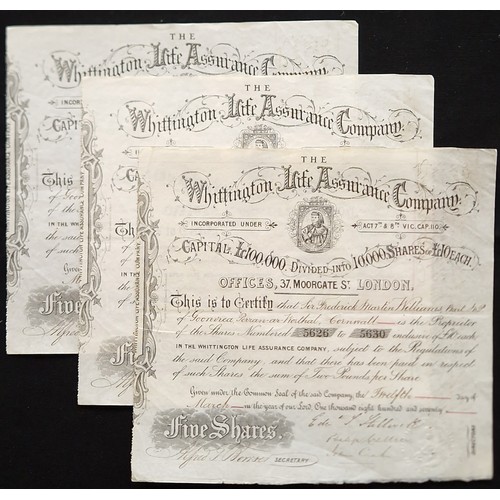 THE
Whittington Life Assurance Company.
INCOR
CAPI
This
of
of the S
IN THE WHI
of such
Five
Alfred
THE
Whittington Life Assurance Company.
INCORPO
CAPIT
This is
of
of the
IN THE WHIT
of such
Given
Five
THE
Whittington Life Assurance Company.
INCORPORATED UNDER
ACT 7th & 8th VIC. CAP. 110.
CAPITAL £100,000, DIVIDED INTO 10,000 SHARES OF £10 EACH.
OFFICES, 37, MOORGATE ST. LONDON.
This is to Certify that Sir Frederick Martin Williams Bart M.P.
of Goonvrea Perran-ar-Worthal, Cornwall is the Proprietor
of the Shares Numbered 5626 to 5630 inclusive of £10 each
IN THE WHITTINGTON LIFE ASSURANCE COMPANY, subject to the Regulations of
the said Company and that there has been paid in respect
of such Shares the sum of Two Pounds per Share
Given under the Common Seal of the said Company, the Twelfth day of
March in the year of our Lord, One thousand eight hundred and seventy
Five Shares.
Alfred T. Bowser SECRETARY
WHITTINGTON LIFE ASSURANCE COMPANY